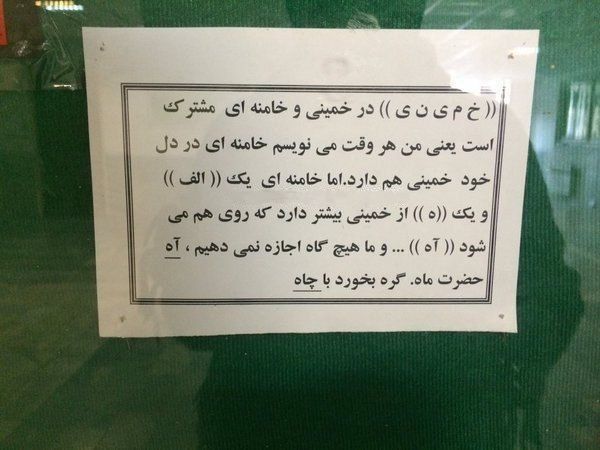 (( خ م ی ن ی )) در خمینی و خامنه ای مشترک
است یعنی من هر وقت می نویسم خامنه ای در دل
خود خمینی هم دارد.اما خامنه ای یک (( الف ))
و یک ((ه )) از خمینی بیشتر دارد که روی هم می
شود (( آه )) ... و ما هیچ گاه اجازه نمی دهیم ، آه
حضرت ماه. گره بخورد با چاه